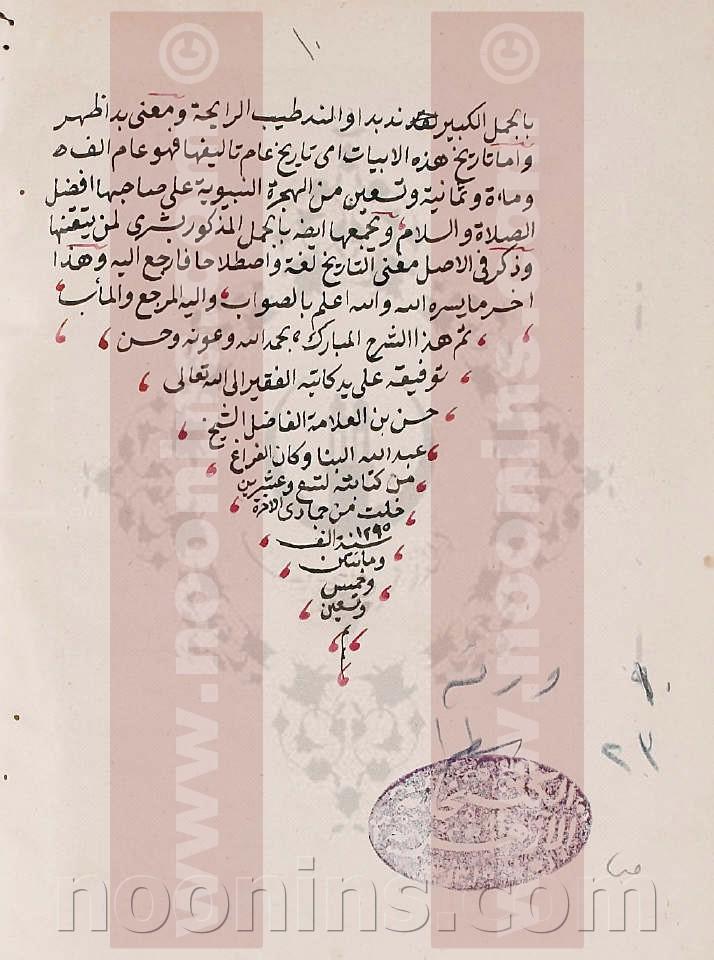 بالجمل الكبير ند بدا والند طيب الرايحة ومعنى بدا ظهر
واما تاريخ هذه الابيات اى تاريخ عام تاليفها فهو عام الف
وماءة وثمانية وتسعين من الهجرة النبيوية على صاحبها افضل
الصلاة والسلام ويجمعها ايضه بالجمل المذكور بشرى لمن يتقنها
وذكر فى الاصل معنى التاريخ لغة واصطلاحا فارجع اليه وهذا
اخر ما يسره الله والله اعلم بالصواب واليه المرجع والمأب
تم هذا الشرح المبارك بحمد الله وعونه وحسن
توفيقه على يد كاتبه الفقير الى الله تعالى
حسن بن العلامة الفاضل الشيخ
عبد الله البنا وكان الفراغ
من كتابته لتسع وعشرين
خلت من جمادى الاخرة
سنة الف ١٢٩٥
ومائتين
وخمس
وتسعين
ورقه ٩
سطرا ٢٣
www.noonins.com
www.noonins.com
noonins.com